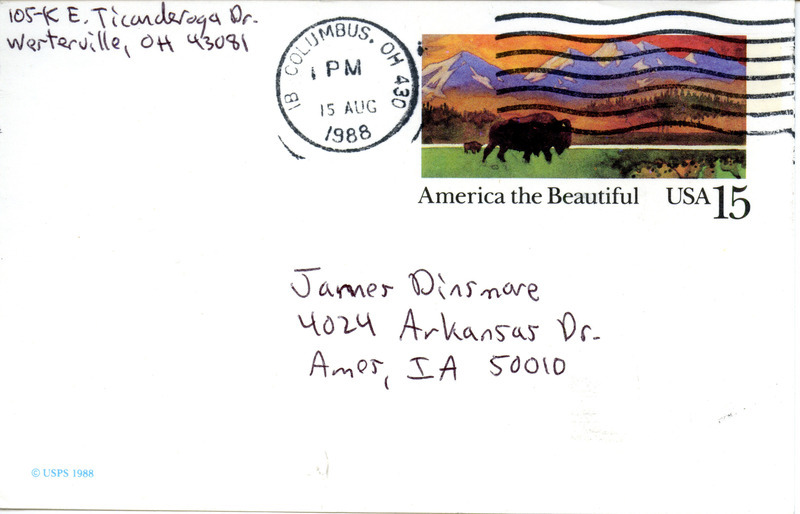 105-K E. Ticonderoga Dr.
Westerville, OH 43081
IB COLUMBUS, OH 430
PM
15 AUG
1988
America the Beautiful USA 15
James Dinsmore
4024 Arkansas Dr.
Ames, IA 50010
© USPS 1988